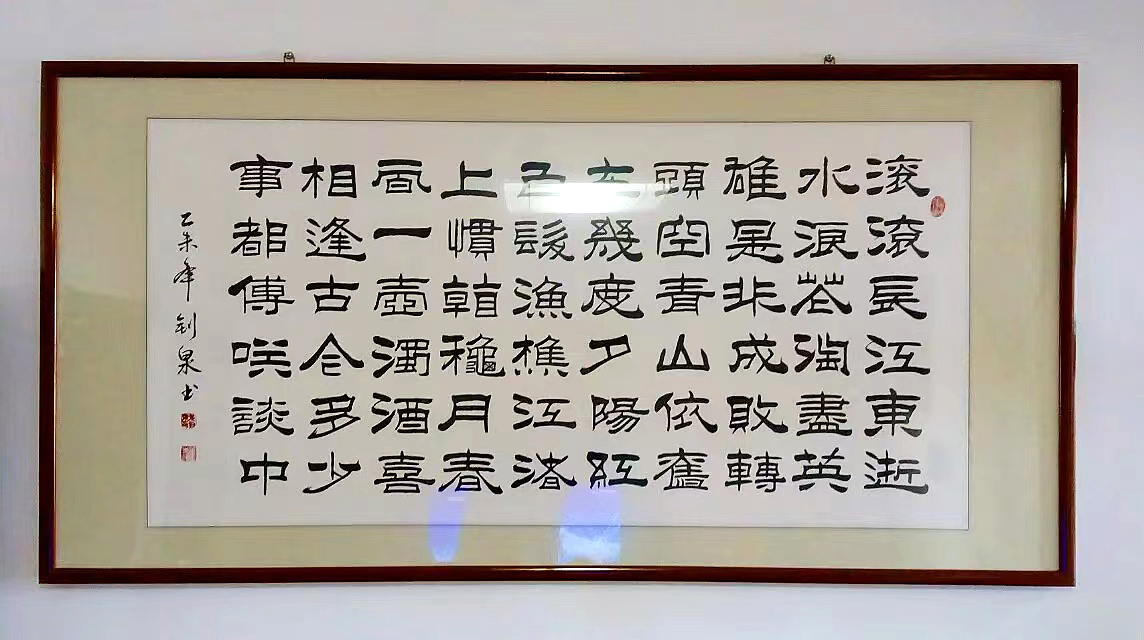 滚滚長江東逝
水浪花淘盡英
雄是非成敗轉
頭空青山依舊
在幾度夕陽紅
白髮漁樵江渚
上慣看龝月春
風一壺濁酒喜
相逢古今多少
事都傳咲談中
乙未年钊泉书